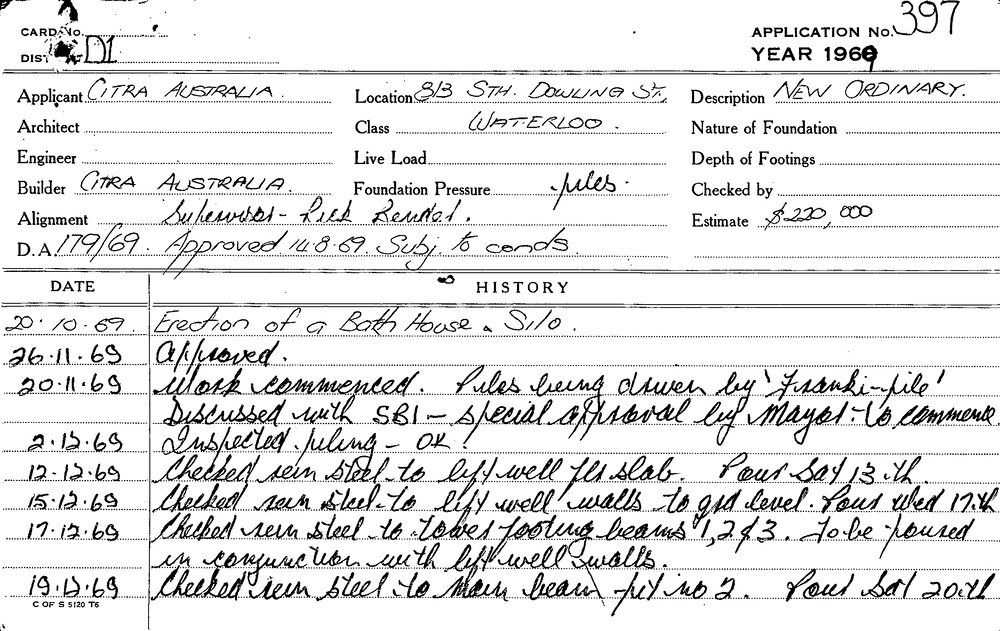 CARD No.
DIST D1
APPLICATION No. 397
YEAR 1969
Applicant CITRA AUSTRALIA.
Location 813 STH. DOWLING ST.,
Description NEW ORDINARY.
Architect
Class WATERLOO.
Nature of Foundation
Engineer
Live Load
Depth of Footings
Builder CITRA AUSTRALIA.
Foundation Pressure piles.
Checked by
Alignment Supervisor -
Estimate $220,000
D.A. 179/69. Approved 14.8.69. Subj. to conds.
DATE HISTORY
20.10.69. Erection of a Bath House & Silo.
26.11.69 Approved.
20.11.69 Work commenced. Piles being driven by 'Franki-pile'
Discussed with SBI - special approval by Mayor to commence
2.12.69 Inspected piling - OK
12.12.69 Checked rein steel to lift well flr slab. Pour Sat 13.th.
15.12.69 Checked rein steel to lift well walls to grd level. Pour Wed 17.th
17.12.69 Checked rein steel to tower footing beams 1, 2 & 3. To be poured
in conjunction with lift well walls.
19.12.69 Checked rein steel to main beam pit no 2. Pour Sat 20.th
C OF S 5120 T6